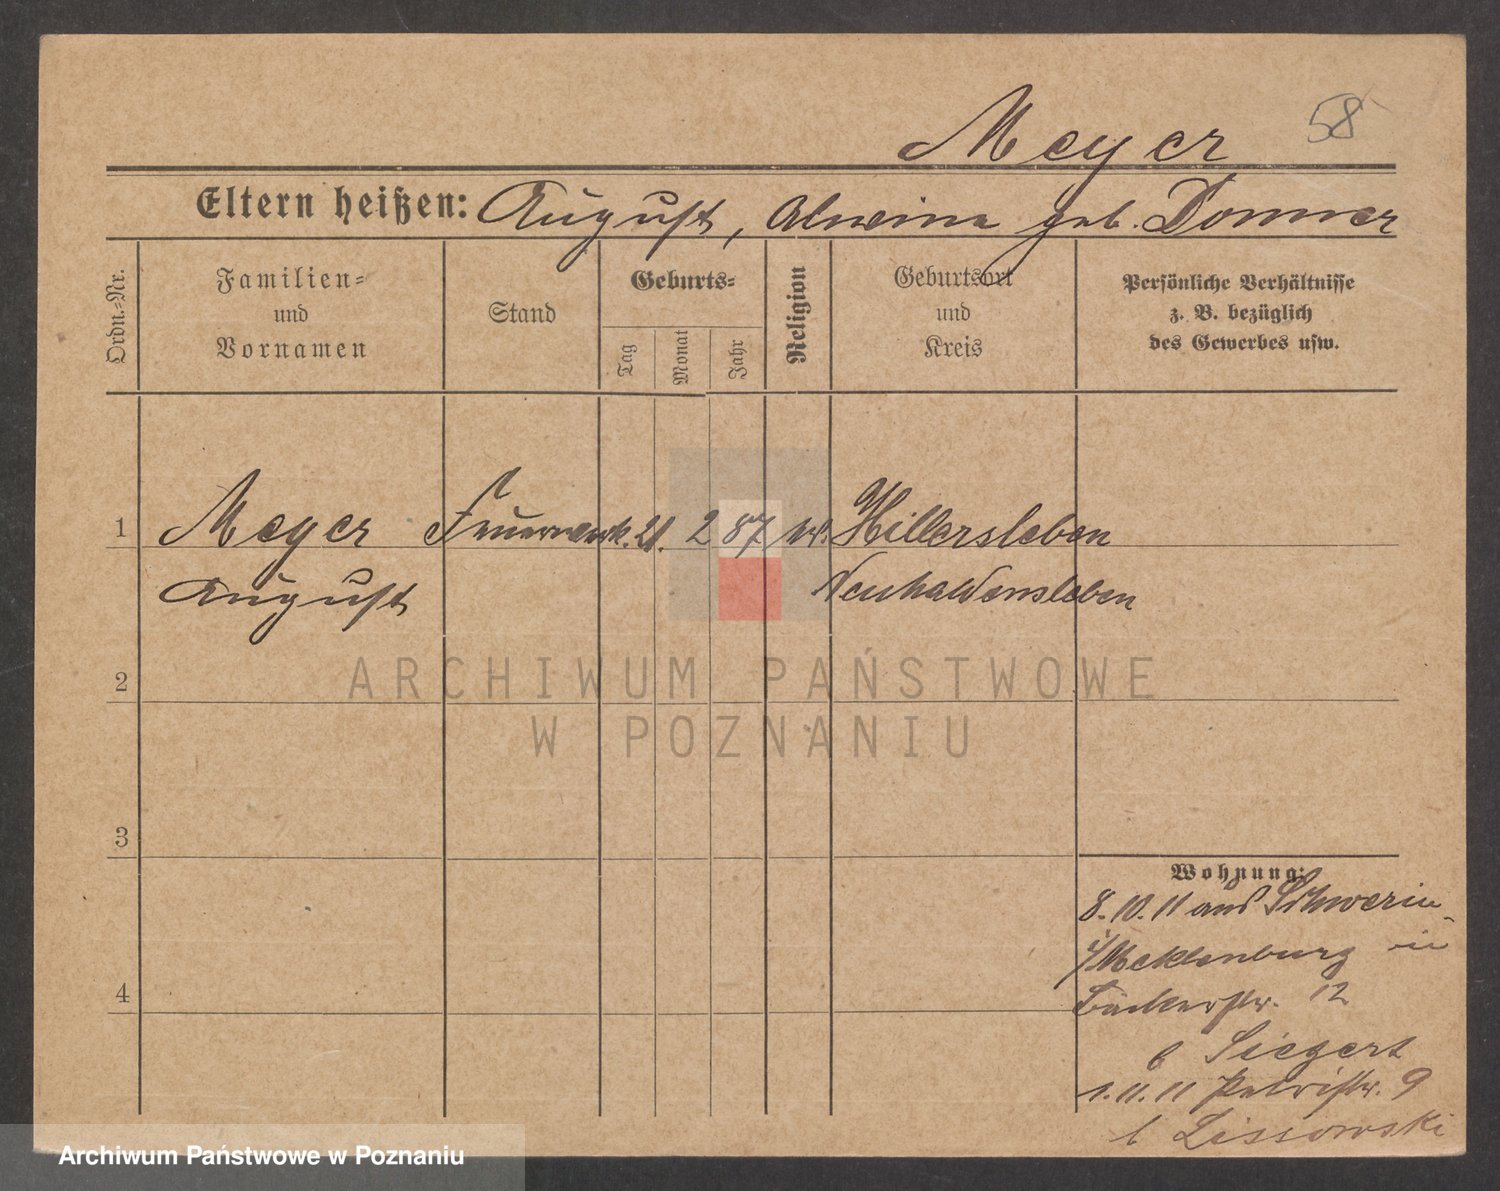 Meyer 58
Eltern heißen: August, Alweine geb. Donner
Ordn.-Nr.
Familien-
und
Vornamen
Stand
Geburts-
Tag
Monat
Jahr
Religion
Geburtsort
und
Kreis
Persönliche Verhältnisse
z. B. bezüglich
des Gewerbes usw.
1 Meyer Feuerwerk. 21. 2 87 Hillersleben
August Neuhaldensleben
2
ARCHIWUM PAŃSTWOWE
W POZNANIU
3
Wohnung:
8.10.11 aus Schwerin
i/Mecklenburg in
4
Bäckerstr. 12
b Siegert
1.11.11 Petristr. 9
b Lissowski
Archiwum Państwowe w Poznaniu